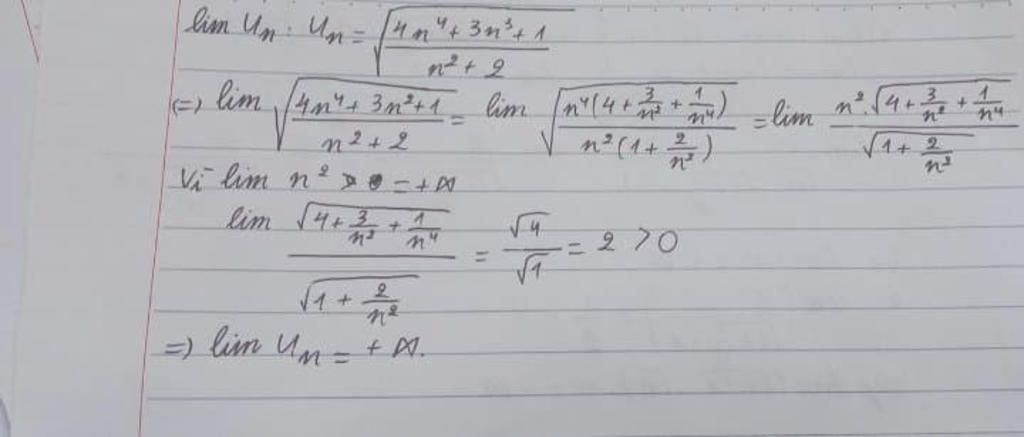 lim Un : Un = √((4n⁴ + 3n³ + 1)/(n² + 2))
(=) lim √((4n⁴ + 3n² + 1)/(n² + 2)) = lim √((n⁴(4 + 3/n² + 1/n⁴))/(n²(1 + 2/n²))) = lim (n².√(4 + 3/n² + 1/n⁴))/(√(1 + 2/n²))
Vì lim n² = +∞
lim (√(4 + 3/n² + 1/n⁴))/(√(1 + 2/n²)) = √4/√1 = 2 > 0
=) lim Un = +∞.